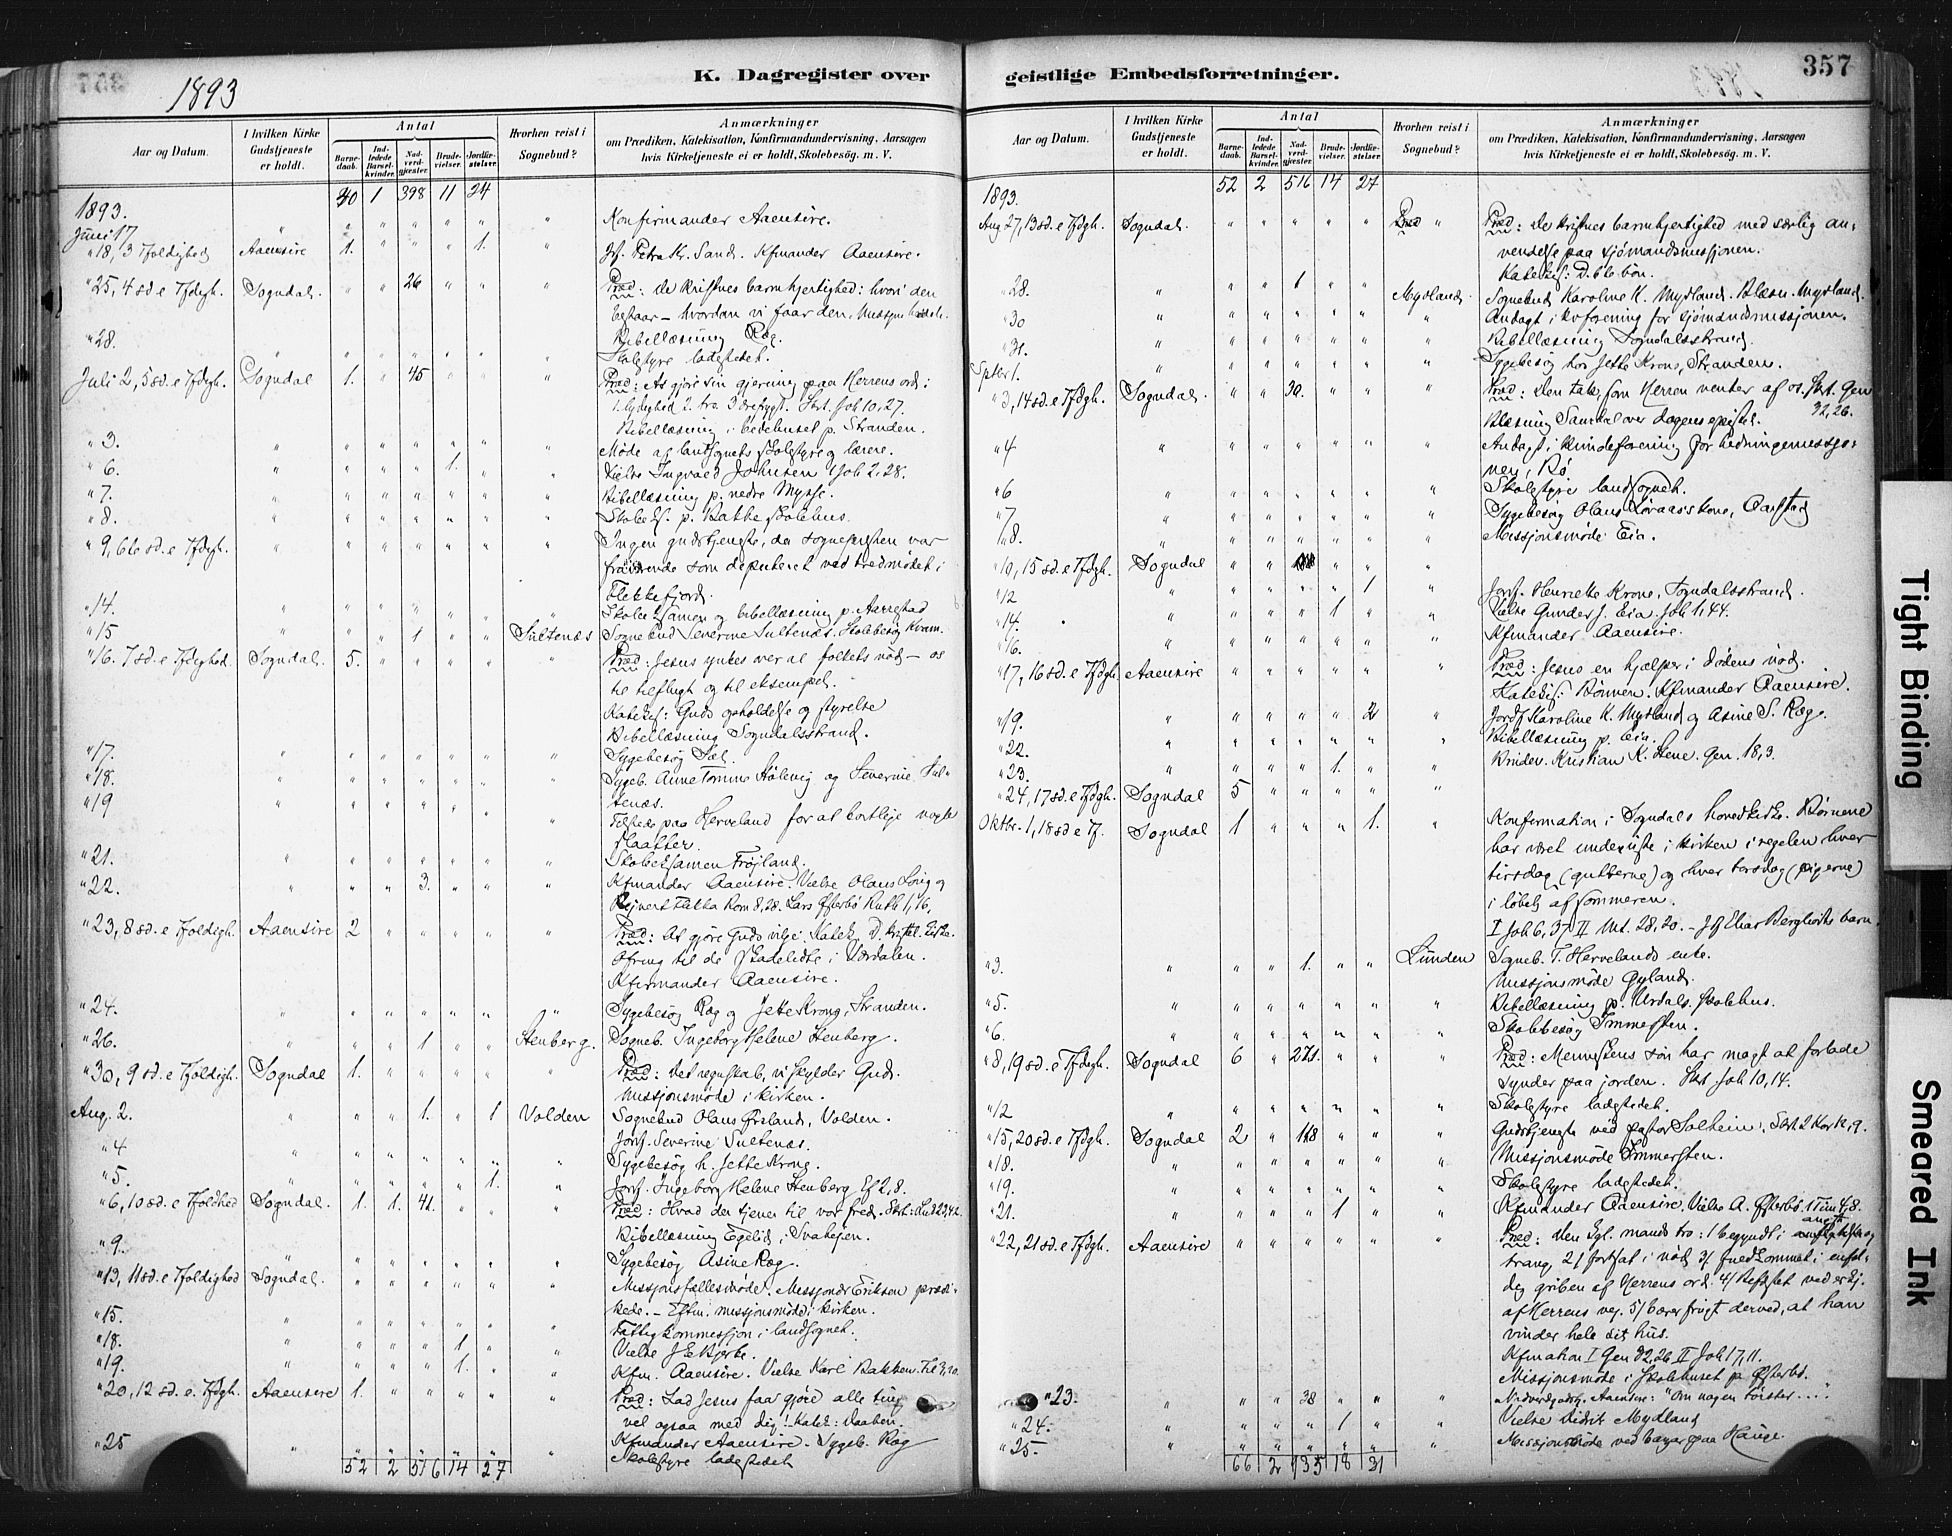 1893
K. Dagregister over
Aar og Datum.
I hvilken Kirke Gudstjeneste er holdt.
Antal
Barne-daab.
Ind-ledede Barsel-kvinder.
Nad-verd-gjæster.
Brude-vielser.
Jordfæ-stelser.
Hvorhen reist i Sognebud?
Anmærkninger
om Prædiken, Katekisation, Konfirmandundervisning, Aarsagen
hvis Kirketjeneste ei er holdt, Skolebesøg. m. V.
40 1 398 11 24
1893.
Juni 17 " " " " " " " Konfirmander Aaensire.
" 18, 3 Tfoldighed Aaensire 1. " " " 1. " Jf. Petra Kr. Sand. Kfmander Aaensire.
" 25, 4 sd. e Tfdgh. Sogndal. " " 26 " " " Præd: De kristnes barmhjertighed: hvori den
bestaar – hvordan vi faar den.
Bibellæsning Ræg.
" 28. " " " " " " " Skolestyre ladestedet.
Juli 2, 5 sd. e Tfdgh. Sogndal 1. " 45 " " " Præd: At gjøre sin gjerning paa Herrens ord:
1. lydighed 2. tro. Skt. Joh 10,27.
Bibellæsning i bedehuset p. Stranden.
" 3. " " " " " " " Møde af landsognets skolestyre og lærere.
" 6. " " " " 1. " " Vielse Ingvald Johnsen 1 Joh 2,28.
" 7. " " " " " " " Bibellæsning p. nedre Mysse.
" 8. " " " " " " " p. Bakke skolehus.
" 9, 6te sd. e Tfdgh. " " " " " " " Ingen gudstjeneste, da sognepresten var
fraværende som deputeret ved kredsmødet i
Flekkefjord.
" 14. " " " " " " " Skoleeksamen og bibellæsning p. Aarrestad
" 15 " " " 1 " " Sultenæs Sognebud Severine Sultenæs. Skolebesøg Kvam.
" 16. 7 sd. e Tfdghed. Sogndal. 5. " " " " " Præd: Jesus ynkes over al folkets nød – os
til tilflugt og til eksempel.
Kateks: Guds opholdelse og styrelse
Bibellæsning Sogndalsstrand.
" 17. " " " " " " " Sygebesøg
" 18. " " " " " " " Sygeb. Anne Tomine Stølevig og Severine Sul-
tenæs.
" 19 " " " " " " " Tilstede paa Herveland for at bortleje nogle
slaatter.
" 21. " " " " " " " Skoleeksamen Frøjland.
" 22. " " " 3. " " " Kfmander Aaensire. Vielse Olaus Løvig og
Rom 8,28. Lars Østerbø Ruth 1,16,
" 23, 8 sd. e Tfoldigh. Aaensire 2 " " " " " Præd: At gjøre Guds vilje. Katek.
Ofring til de skadelidte i Værdalen.
Kfirmander Aaensire.
" 24. " " " " " " " Sygebesøg Ræg og Jette Krone, Stranden.
" 26. " " " 1 " " Stenberg. Sogneb. Ingeborg Helene Stenberg.
" 30, 9 sd. e Tfoldigh. Sogndal 1. " " " " " Præd: Det regnskab, vi skylder Gud.
Missjonsmøde i kirken.
Aug. 2. " " " 1. " 1 Volden Sognebud Olaus Ørsland, Volden.
Jordf. Severine Sultenæs.
" 4 " " " " " " " Sygebesøg h. Jette Krone.
" 5. " " " " " 1. " Jordf. Ingeborg Helene Stenberg Ef 2,8.
" 6, 10 sd. e Tfoldhed Sogndal. 1. 1. 41. " " " Præd: Hvad der tjener til vor fred.
Bibellæsning Egelid, i Svaaheien.
" 9. " " " " " " " Sygebesøg Asine Ræg.
" 13, 11 sd. e Tfoldighed Sogndal. " " " " " " Missjonsfællesmøde. Missjonær Eriksen prædi-
kede. – Eftm. missjonsmøde i kirken.
" 15. " " " " " " " Fattigkommissjon i landsognet.
" 18. " " " " 1 " " Vielse
" 19. " " " " 1. " " Kfm. Aaensire. Vielse Karl Bakken.
" 20, 12 sd. e. Tfdgh. Aaensire 1. " " " " " Præd: Lad Jesus faa gjøre alle ting
vel ogsaa med dig! Katek: Daaben.
Kfmander Aaensire. Sygeb. Ræg
" 25 " " " " " " " Skolestyre ladestedet
52 2 516 14 27
geistlige Embedsforretninger.
357
Aar og Datum.
I hvilken Kirke Gudstjeneste er holdt.
Antal
Barne-daab.
Ind-ledede Barsel-kvinder.
Nad-verd-gjæster.
Brude-vielser.
Jordfæ-stelser.
Hvorhen reist i Sognebud?
Anmærkninger
om Prædiken, Katekisation, Konfirmandundervisning, Aarsagen
hvis Kirketjeneste ei er holdt, Skolebesøg. m. V.
52 2 516 14 27
1893.
Aug 27, 13 sd. e Tfdgh. Sogndal. " " " " " " Præd: De kristnes barmhjertighed med særlig an-
vendelse paa sjømandsmissjonen.
Kateks: D. 6te bøn.
" 28. " " " 1 " " Mydland. Sognebud Karoline K. Mydland. Blæsn. Mydland.
" 30 " " " " " " " Andagt i kvforening for sjømandsmissjonen.
" 31. " " " " " " " Bibellæsning Sogndalsstrand.
Septbr 1. " " " " " " " Sygebesøg hos Jette Krone, Stranden.
" 3, 14 sd. e Tfdgh. Sogndal. " " 30. " " " Præd: Den tak, som Herren venter af os. Skt. Gen
32,26.
Blæsning Sandal over dagens epistel.
" 4 " " " " " " " Andagt i kvindeforening for hedningemissjo-
nen, Bø
" 6 " " " " " " " Skolestyre landsognet.
" 7 " " " " " " " Sygebesøg Olaus
" 8. " " " " " " " Missjonsmøde Eia.
" 10, 15 sd. e Tfdgh. Sogndal " " " " "
" 12 " " " " " 1 " Jordf. Henriette Krone, Sogndalsstrand.
" 14. " " " " 1 " " Vielse Gunder J. Eia. Joh 1,44.
" 16. " " " " " " " Kfmander Aaensire.
" 17, 16 sd. e Tfdgh. Aaensire " " " " " " Præd: Jesus en hjælper i dødens nød.
Kateks: Bønnen. Kfmander Aaensire.
" 19. " " " " " 2 " Jordf Karoline K. Mydland og Asine S. Ræg.
" 22. " " " " " " " Bibellæsning p. Eia.
" 23. " " " " 1. " " Brudev. Kristian K. Stene. Gen. 18,3.
" 24, 17 sd. e Tfdgh. Sogndal 5 " " " " "
Oktbr. 1, 18 sd e Tf. Sogndal 1 " " " 1. " Konfirmation i Sogndals hovedkirke. Børnene
har været underviste i kirken i regelen hver
tirsdag (gutterne) og hver torsdag (pigerne)
i løbet af sommeren.
I Joh 6,37 II Mt. 28,20. – Jf Elias Bergliviks barn.
" 3. " " " 1. " " Lunden Sogneb. T. Hervelands enke.
Missjonsmøde Gyland.
" 5. " " " " " " " Bibellæsning p. Urdals skolehus.
" 6. " " " " " " " Skolebesøg Immersten.
" 8, 19 sd. e Tfdgh. Sogndal 6 " 271. " " " Præd: Menneskens søn har magt at forlade
synder paa jorden. Skt. Joh 10,14.
" 12 " " " " " " " Skolestyre ladestedet.
" 15, 20 sd. e Tfdgh. Sogndal 2 " 168 " " " Gudstjeneste ved pastor Solheim. Skt. 2 Kor 12,9.
" 18. " " " " " " " Missjonsmøde Immersten.
" 19. " " " " " " " Skolestyre ladestedet.
" 21. " " " " 1 " " Kfmander Aaensire. Vielse A. Østerbø. 1 Tim 4,8.
" 22, 21 sd. e Tfdgh. Aaensire " " " " " " Præd: Den kgl. mands tro: 1/ begyndt i angst og
trang, 2/ fortsat i nød, 3/ fuldkommet i enfol-
dig griben af Herrens ord. 4/
af Herrens vej. 5/ bærer frugt derved, at han
vinder hele sit hus.
Kfmation I Gen 32,26 II Joh 17,11.
Missjonsmøde i skolehuset p. Østerbø.
" 23. " " " 38 " " " Aaensire: "Om nogen tørster...."
" 24. " " " " 1 " " Vielse Didrik Mydland
" 25– " " " " " " " Missjonsmøde ved bazar paa Hauge.
66 2 1035 18 31
Tight Binding
Smeared Ink